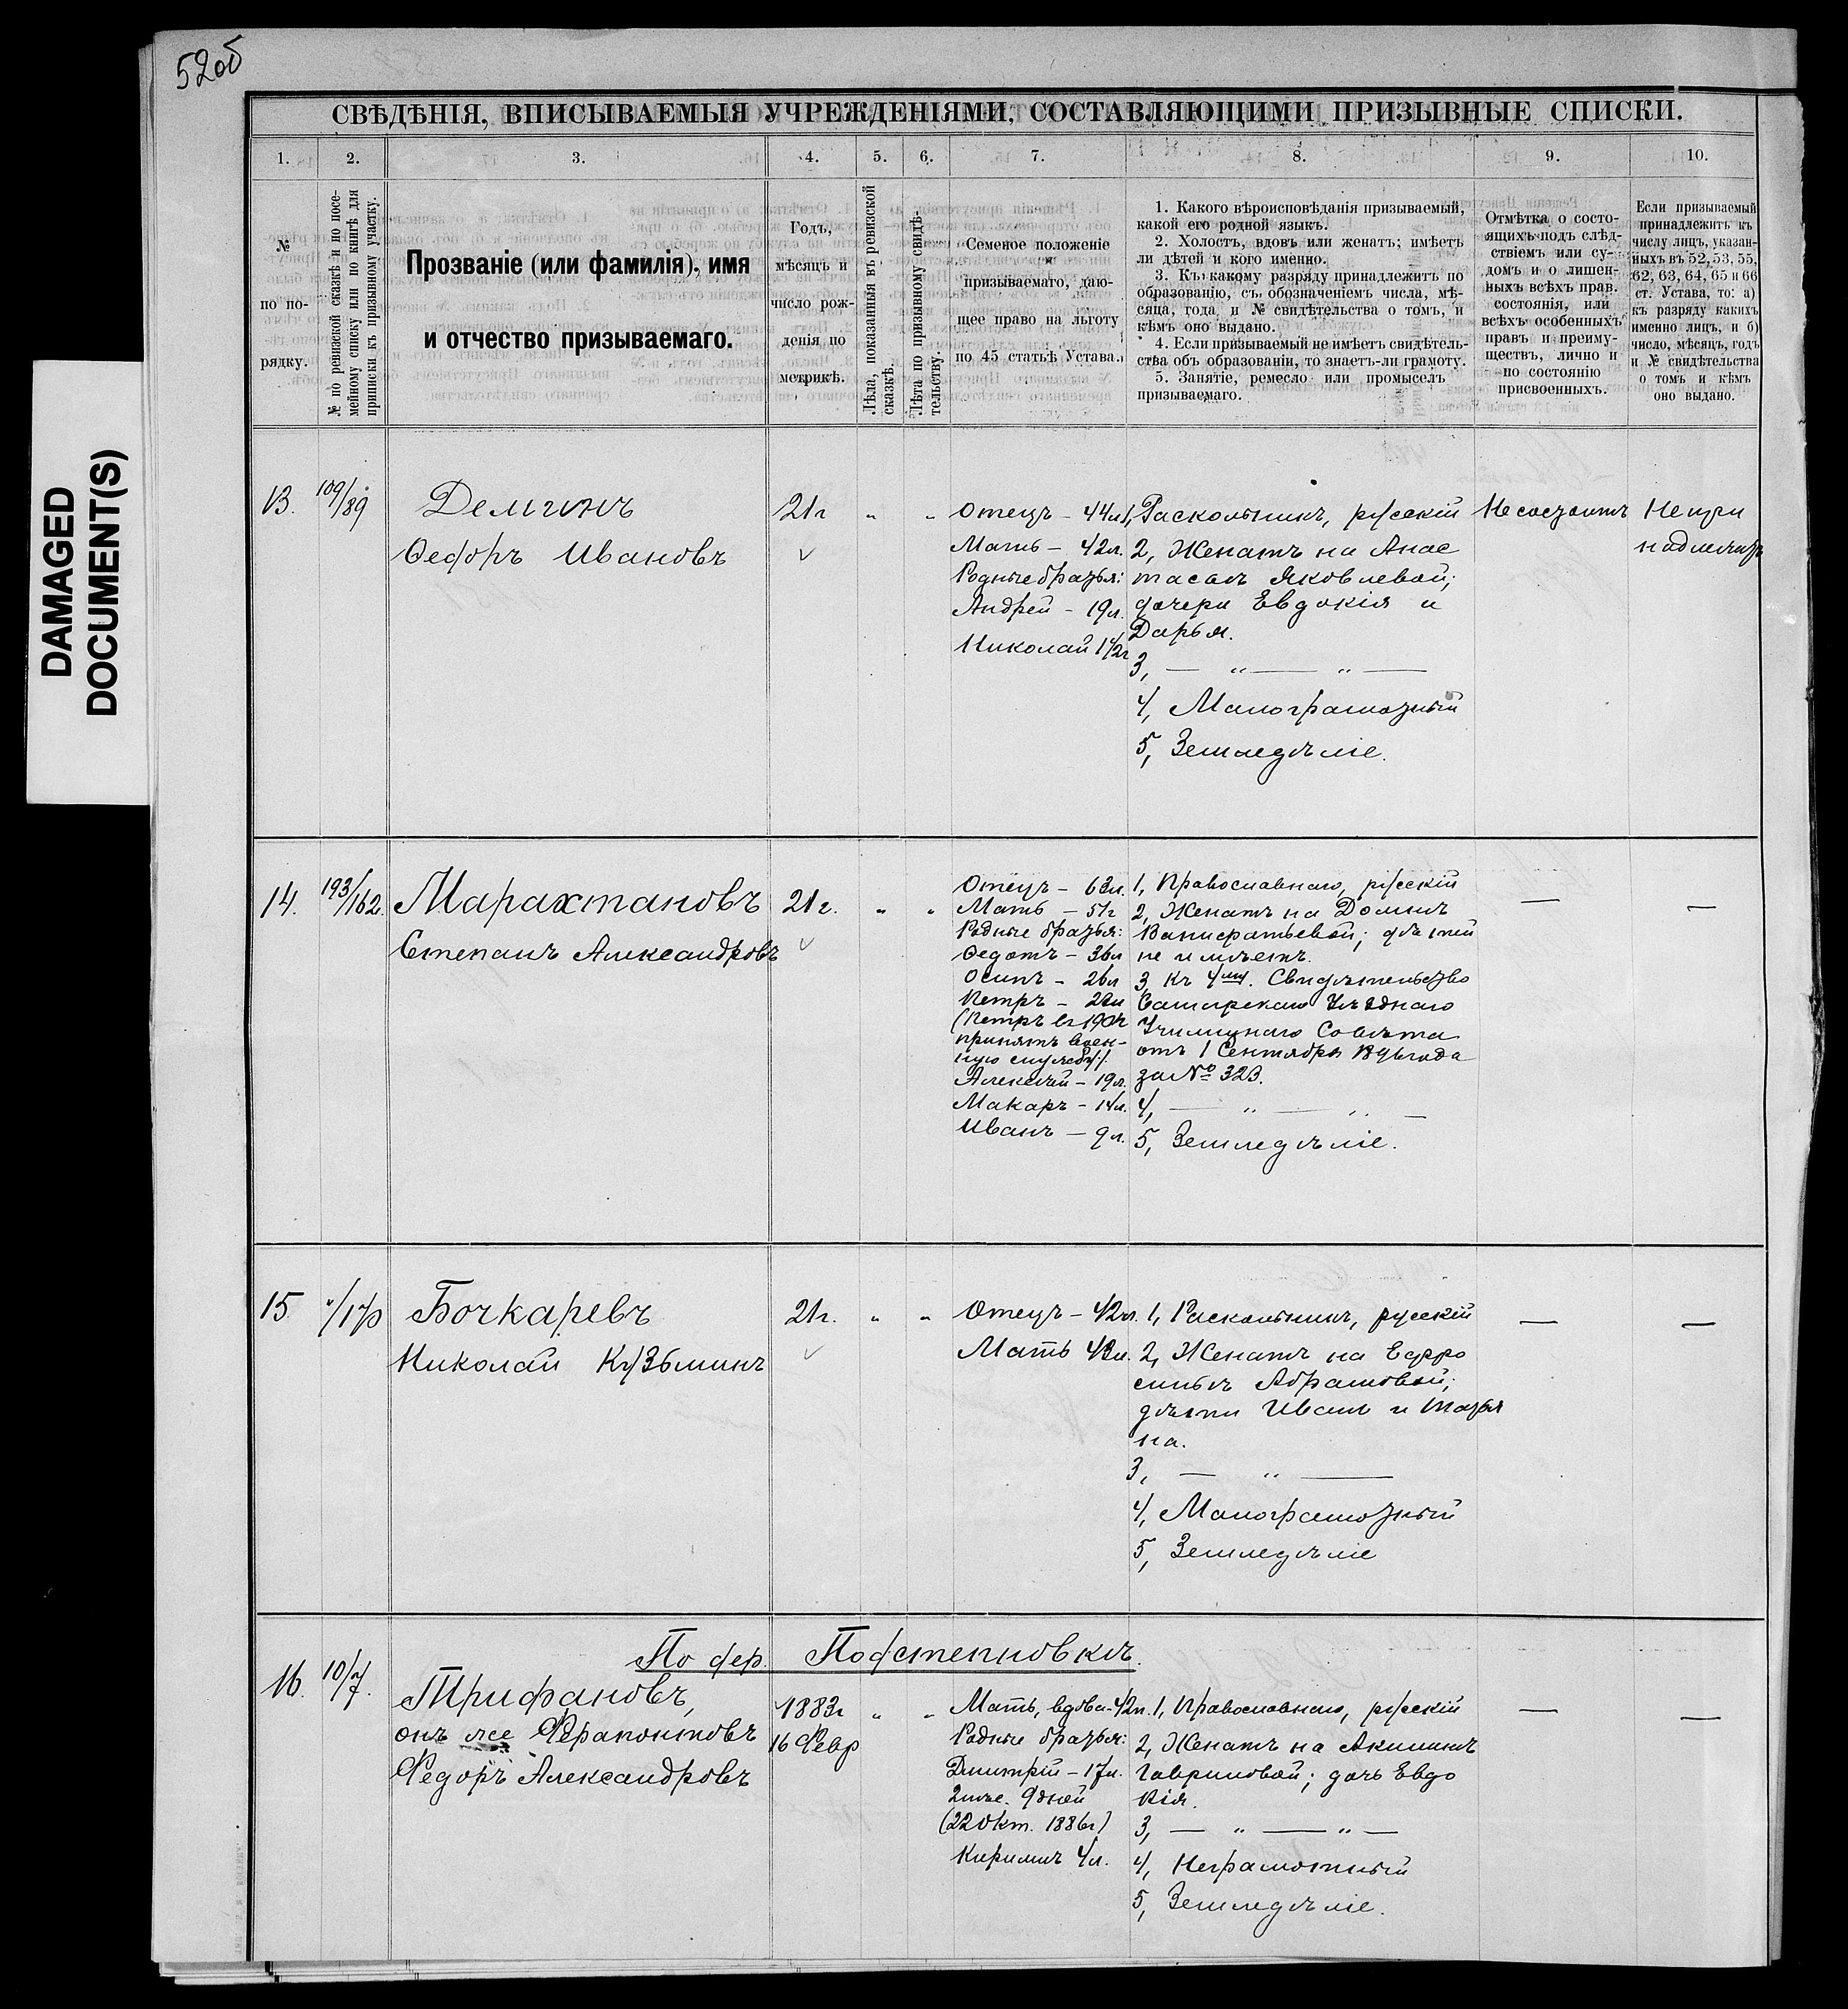 52об
DAMAGED
DOCUMENT(S)
СВѢДѢНІЯ, ВПИСЫВАЕМЫЯ УЧРЕЖДЕНІЯМИ, СОСТАВЛЯЮЩИМИ ПРИЗЫВНЫЕ СПИСКИ.
1. 2. 3. 4. 5. 6. 7. 8. 9. 10.
№
по по-
рядку.
№ по ревизской сказкѣ и по посе-
мейному списку или по книгѣ для
приписки къ призывному участку.
Прозваніе (или фамилія), имя
и отчество призываемаго.
Годъ,
мѣсяцъ и
число рож-
денія по
метрикѣ.
Лѣта, показанныя въ ревизской
сказкѣ.
Лѣта по призывному свидѣ-
тельству.
Семейное положеніе
призываемаго, даю-
щее право на льготу
по 45 статьѣ Устава.
1. Какого вѣроисповѣданія призываемый,
какой его родной языкъ.
2. Холостъ, вдовъ или женатъ; имѣетъ
ли дѣтей и кого именно.
3. Къ какому разряду принадлежитъ по
образованію, съ обозначеніемъ числа, мѣ-
сяца, года и № свидѣтельства о томъ, и
кѣмъ оно выдано.
4. Если призываемый не имѣетъ свидѣтель-
ства объ образованіи, то знаетъ-ли грамоту.
5. Занятіе, ремесло или промыселъ
призываемаго.
Отмѣтка о состо-
ящихъ подъ слѣд-
ствіемъ или су-
домъ и о лишен-
ныхъ всѣхъ прав.
состоянія, или
всѣхъ особенныхъ
правъ и преиму-
ществъ, лично и
по состоянію
присвоенныхъ.
Если призываемый
принадлежитъ къ
числу лицъ, указан-
ныхъ въ 52, 53, 55,
62, 63, 64, 65 и 66
ст. Устава, то: а)
къ разряду какихъ
именно лицъ, и б)
число, мѣсяцъ, годъ
и № свидѣтельства
о томъ и кѣмъ
оно выдано.
13. 109/89
Демгинъ
Ѳедоръ Ивановъ
21г
Отецъ – 44л
Мать – 42л.
Родные братья:
Андрей – 19л.
Николай 1 1/2г
1, Раскольникъ, русскій
2, Женатъ на Анас
тасіи Яковлевой;
дочери Евдокія и
Дарья.
3, — „ — „ —
4, Малограмотный
5, Земледѣліе.
Не состоитъ
Не при
надлежитъ
14. 193/162.
Марахтановъ
Степанъ Александровъ
21г.
Отецъ – 63л.
Мать – 51г
Родные братья:
Ѳедотъ – 36л
Осипъ – 26л
Петръ –
(Петръ въ
принятъ воен-
ную службу).
Алексѣй – 19л.
Макаръ – 14л.
Иванъ – 9л.
1, Православнаго, русскій
2, Женатъ на Домнѣ
Панкратьевой; дѣтей
не имѣетъ.
3, Къ 4му. Свидѣтельство
Самарскаго Уѣзднаго
Училищнаго Совѣта
отъ 1 Сентября 1896 года
за № 323.
4, — „ — „ —
5, Земледѣліе.
—
—
15 „/170
Бочкаревъ
Николай Кузьминъ
21г.
Отецъ – 42л.
Мать 43л.
1, Раскольникъ, русскій
2, Женатъ на Евфро
синьѣ Абрамовой;
дѣти Иванъ и Татья
на.
3, — „ —
4, Малограмотный
5, Земледѣліе
—
—
По дер. Подстепновкѣ.
16. 10/7.
Трифановъ,
онъ же Ферапонтовъ
Федоръ Александровъ
1883г
16 Февр
Мать, вдова – 42л.
Родные братья:
Дмитрій – 17л.
2 мѣс. 9 дней
(22 Окт. 1886г)
Кирилъ 4л.
1, Православнаго, русскій
2, Женатъ на Акилинѣ
Гавриловой; дочь Евдо
кія.
3, — „ — „ —
4, Неграмотный
5, Земледѣліе.
—
—